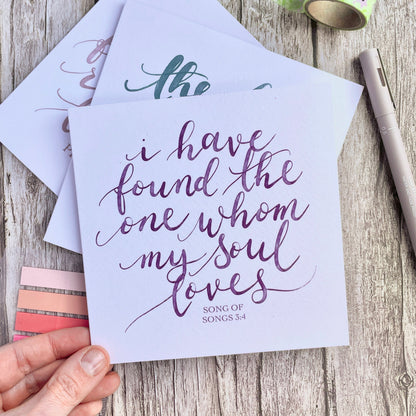 i have
found the
one whom
my soul
loves
SONG OF
SONGS 3:4
the